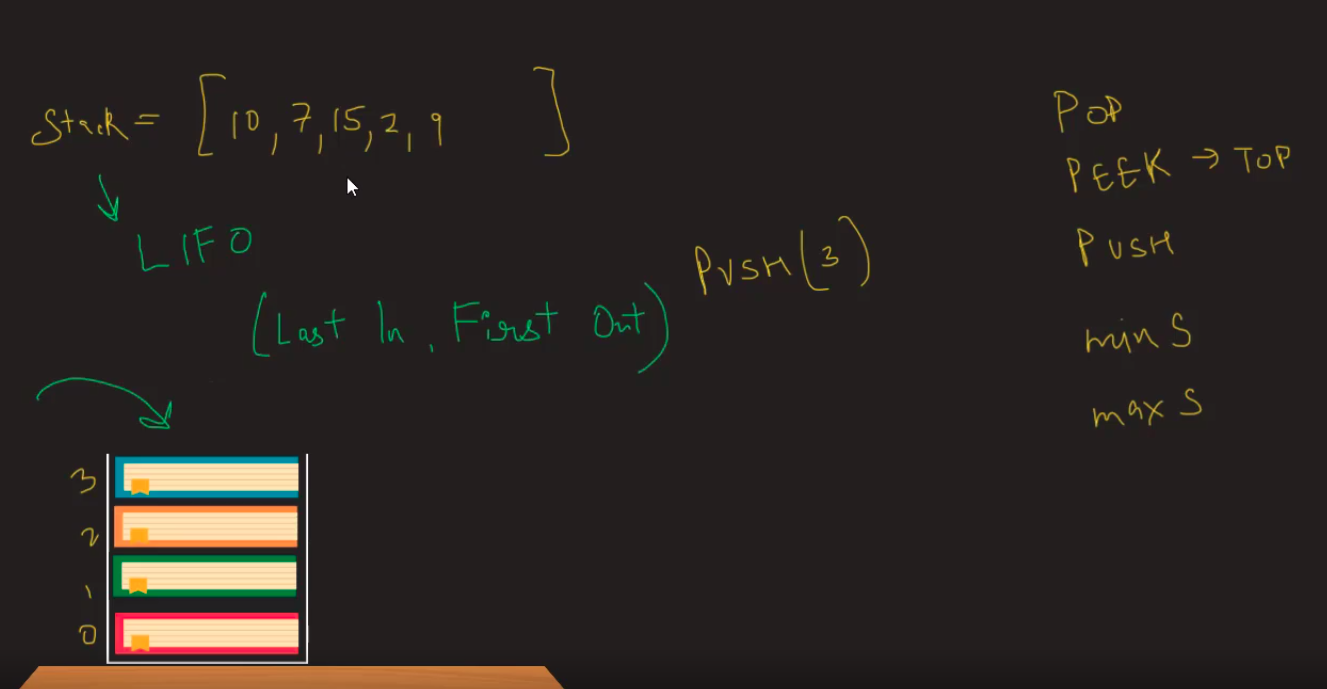 Stack = [10, 7, 15, 2, 9 ]
LIFO
(Last In, First Out)
PUSH(3)
POP
PEEK → TOP
PUSH
min S
max S
3
2
1
0